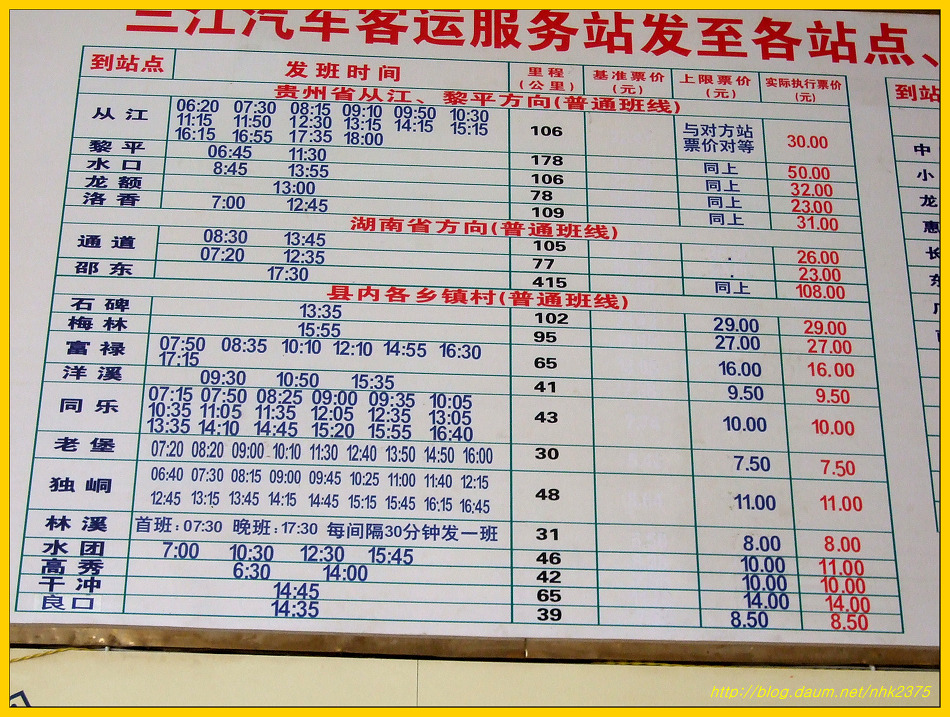 三江汽车客运服务站发至各站点、
到站点 发班时间 里程(公里) 基准票价(元) 上限票价(元) 实际执行票价(元)
贵州省从江、黎平方向(普通班线)
从江 06:20 07:30 08:15 09:10 09:50 10:30
11:15 11:50 12:30 13:15 14:15 15:15
16:15 16:55 17:35 18:00 106 与对方站票价对等 30.00
黎平 06:45 11:30 178 同上 50.00
水口 8:45 13:55 106 同上 32.00
龙额 13:00 78 同上 23.00
洛香 7:00 12:45 109 同上 31.00
湖南省方向(普通班线)
通道 08:30 13:45 105 . 26.00
07:20 12:35 77 . 23.00
邵东 17:30 415 同上 108.00
县内各乡镇村(普通班线)
石碑 13:35 102 29.00 29.00
梅林 15:55 95 27.00 27.00
富禄 07:50 08:35 10:10 12:10 14:55 16:30
17:15 65 16.00 16.00
洋溪 09:30 10:50 15:35 41 9.50 9.50
同乐 07:15 07:50 08:25 09:00 09:35 10:05
10:35 11:05 11:35 12:05 12:35 13:05
13:35 14:10 14:45 15:20 15:55 16:40 43 10.00 10.00
老堡 07:20 08:20 09:00 10:10 11:30 12:40 13:50 14:50 16:00 30 7.50 7.50
独峒 06:40 07:30 08:15 09:00 09:45 10:25 11:00 11:40 12:15
12:45 13:15 13:45 14:15 14:45 15:15 15:45 16:15 16:45 48 11.00 11.00
林溪 首班:07:30 晚班:17:30 每间隔30分钟发一班 31 8.00 8.00
水团 7:00 10:30 12:30 15:45 46 10.00 11.00
高秀 6:30 14:00 42 10.00 10.00
干冲 14:45 65 14.00 14.00
良口 14:35 39 8.50 8.50
到站
中
小
龙
惠
长
东
http://blog.daum.net/nhk2375